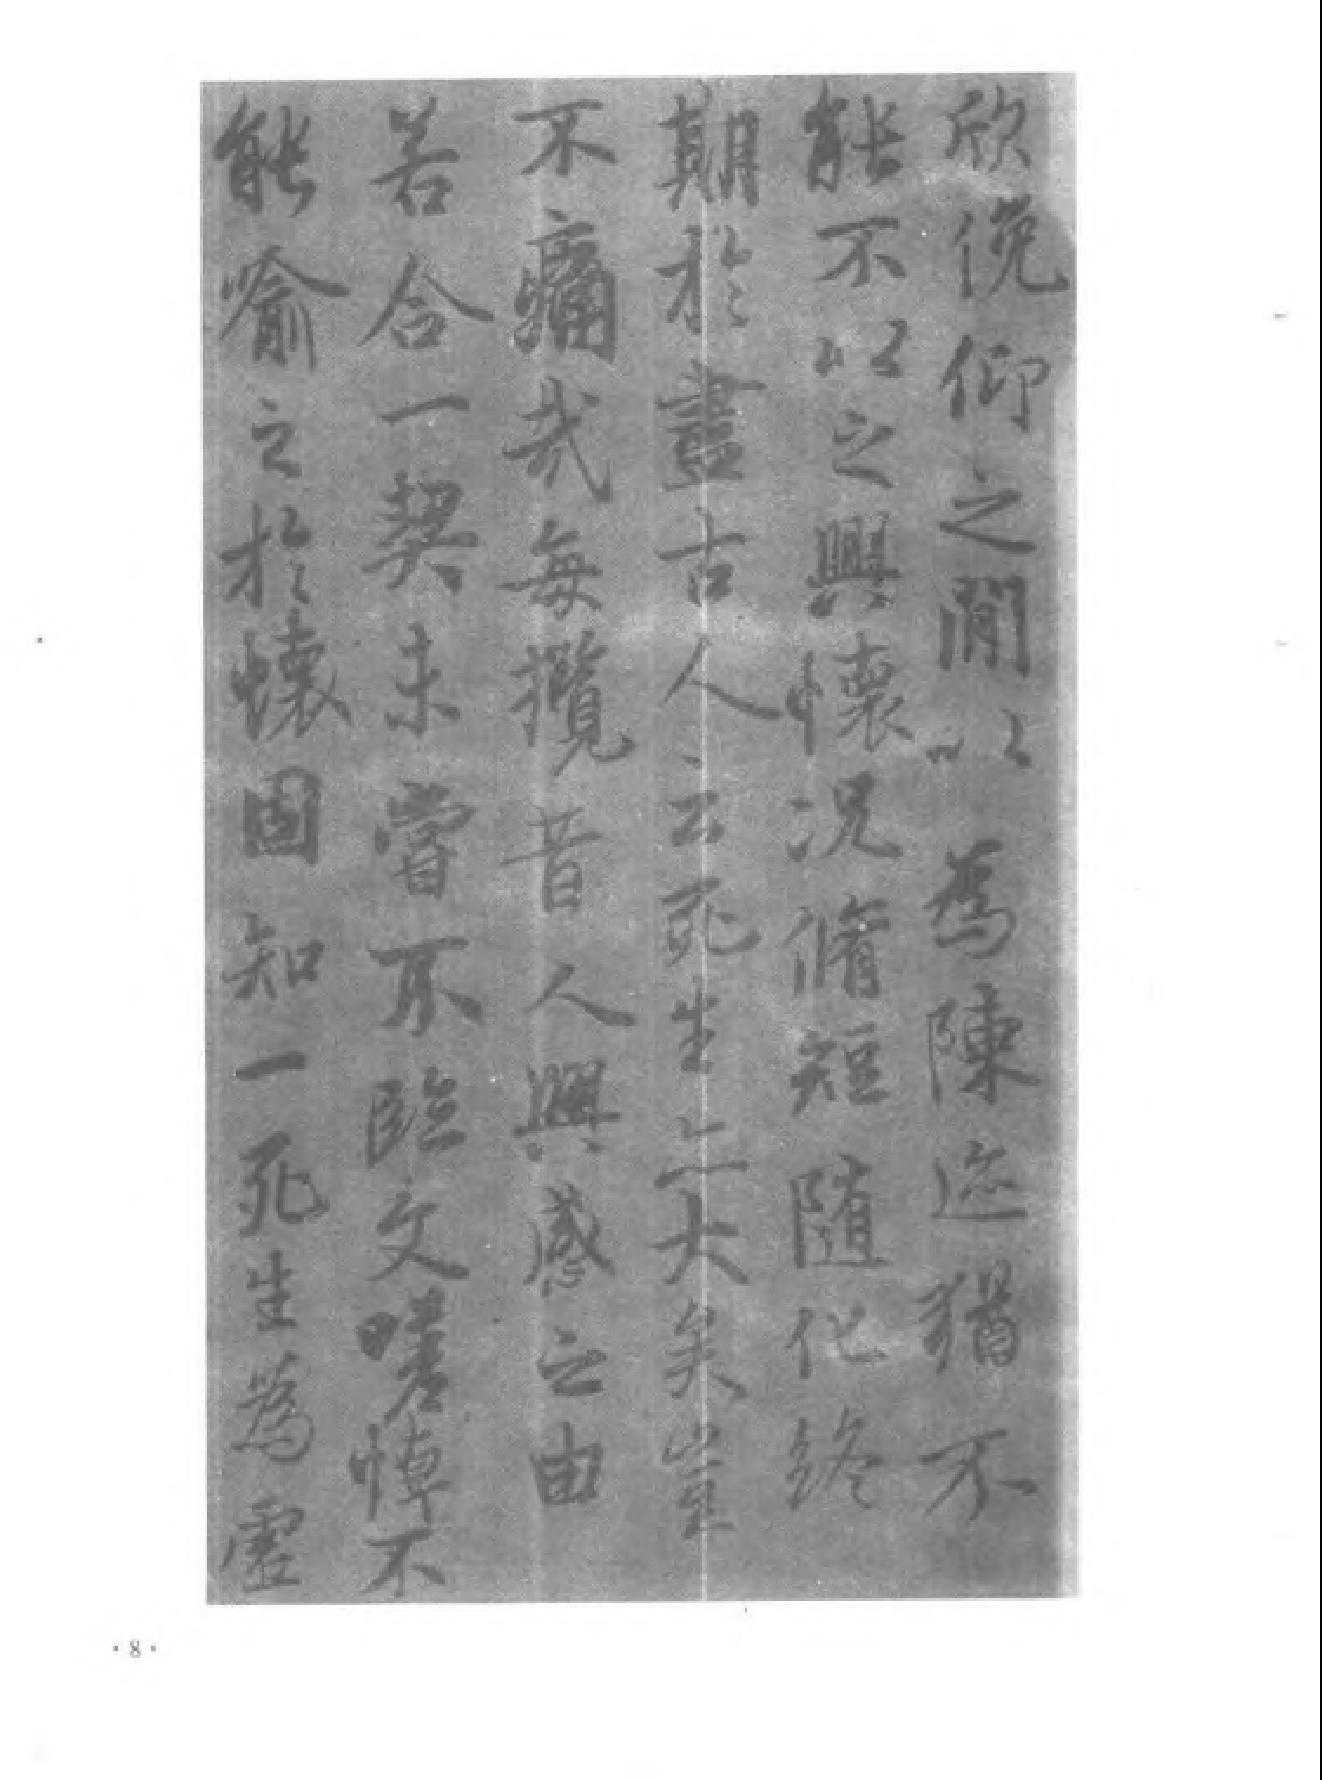 欣俛仰之閒以為陳迹猶不
能不以之興懷況脩短隨化終
期於盡古人云死生亦大矣豈
不痛哉每攬昔人興感之由
若合一契未嘗不臨文嗟悼不
能喻之於懷固知一死生為虛
·8·